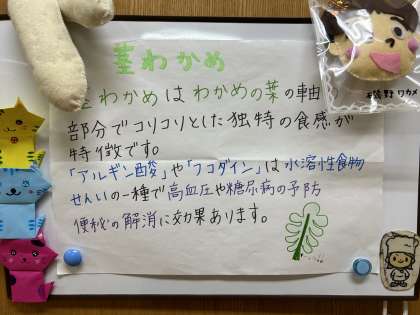 茎わかめ
茎わかめはわかめの葉の軸の
部分でコリコリとした独特の食感が
特徴です。
「アルギン酸」や「フコダイン」は水溶性食物
せんいの一種で高血圧や糖尿病の予防
便秘の解消に効果あります。
磯野ワカメ